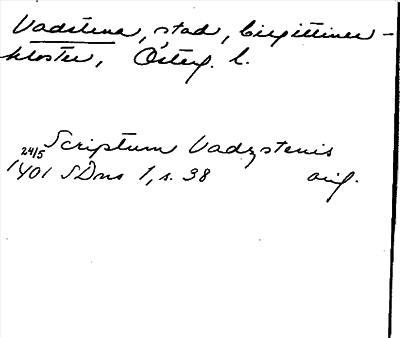 Vadstena, stad, birgittiner-
kloster, Österg. l.
24/5 Scriptum Vadzstenis
1401 SDns 1, s. 38 orig.